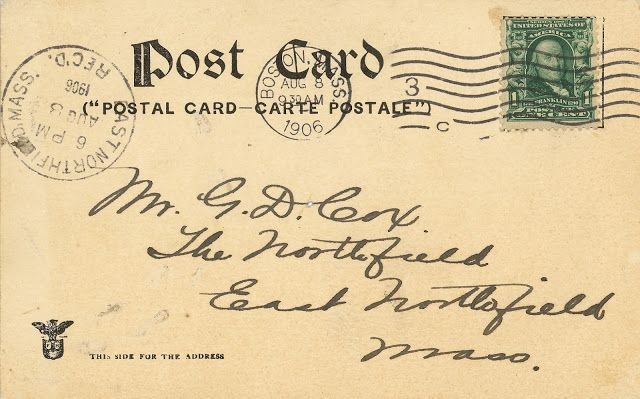 Post Card
("POSTAL CARD—CARTE POSTALE")
BOSTON, MASS
AUG 8
9 30 AM
1906
3
C
SERIES 1902
UNITED STATES OF
AMERICA
FRANKLIN
POSTAGE
1 ONE CENT 1
EAST NORTHFIELD, MASS.
REC'D.
6 PM
AUG
1906
Mr. G. D. Cox
The Northfield
East Northfield
Mass.
THIS SIDE FOR THE ADDRESS